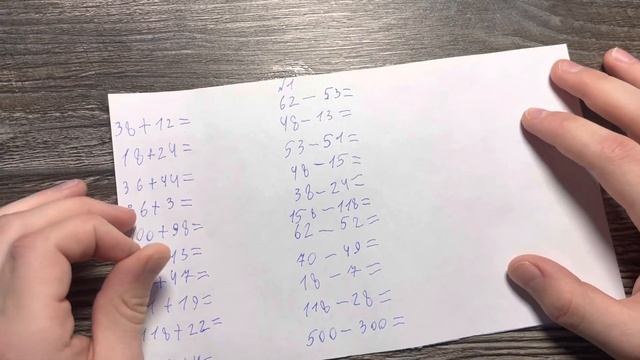 38+12=
18+24=
36+44=
6+3=
00+98=
13=
+47=
+19=
118+22=
№1
62-53=
48-13=
53-51=
48-15=
38-24=
158-118=
62-52=
70-49=
18-7=
118-28=
500-300=